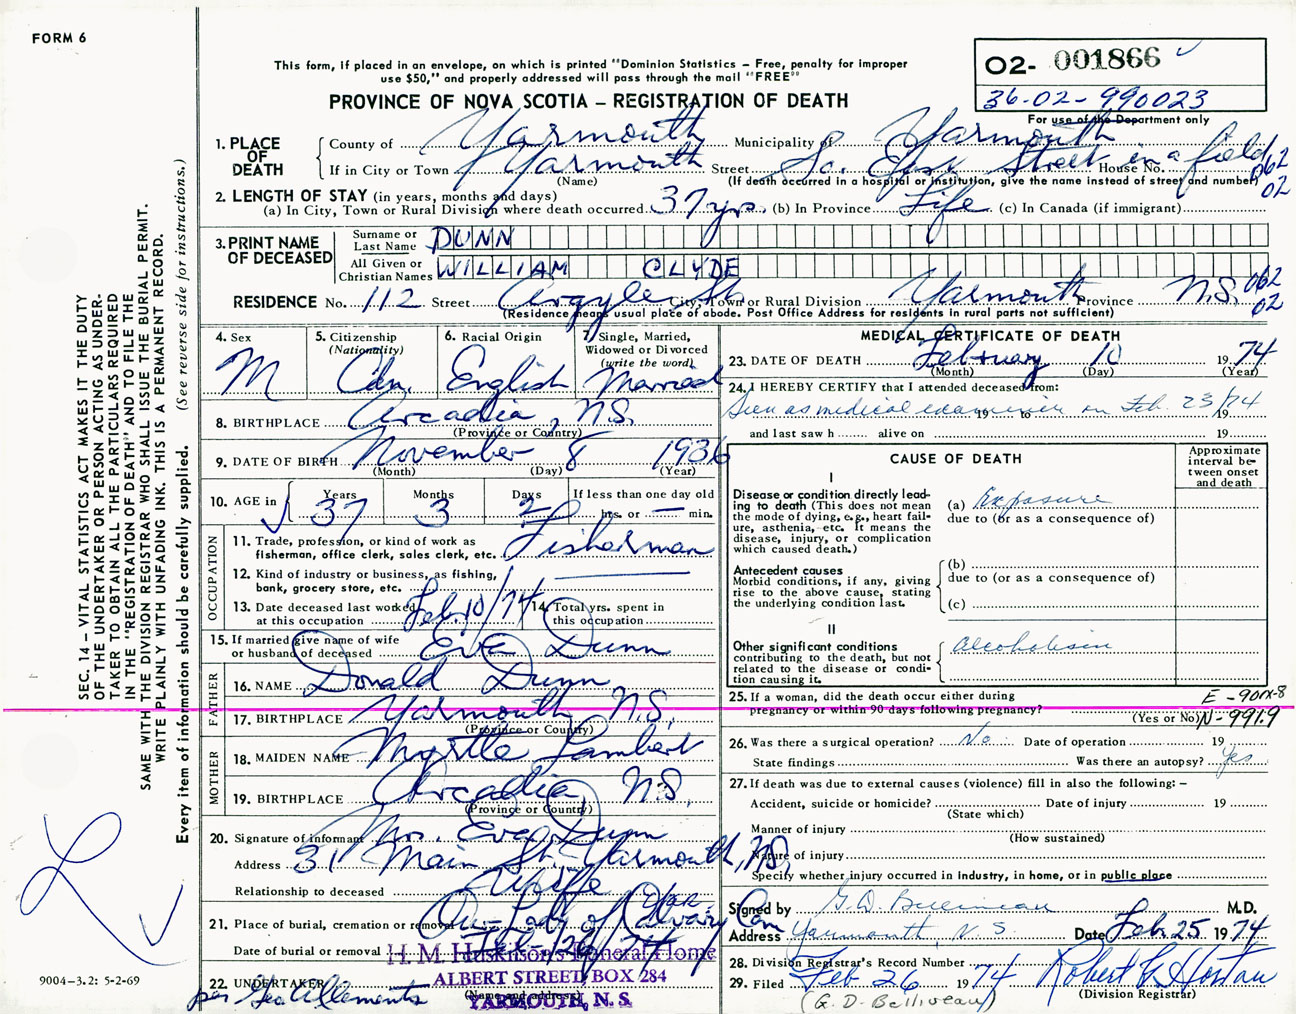 FORM 6
This form, if placed in an envelope, on which is printed "Dominion Statistics – Free, penalty for improper
use $50," and properly addressed will pass through the mail "FREE"
PROVINCE OF NOVA SCOTIA – REGISTRATION OF DEATH
02- 001866
36-02-990023
For use of the Department only
1. PLACE OF DEATH
County of Yarmouth Municipality of Yarmouth
If in City or Town Yarmouth Street So. East Street in a field House No.
062
02
(Name) (If death occurred in a hospital or institution, give the name instead of street and number)
2. LENGTH OF STAY (in years, months and days)
(a) In City, Town or Rural Division where death occurred 37 yrs. (b) In Province Life (c) In Canada (if immigrant)
3. PRINT NAME OF DECEASED
Surname or Last Name DUNN
All Given or Christian Names WILLIAM CLYDE
RESIDENCE No. 112 Street Argyle St. City, Town or Rural Division Yarmouth Province N.S. 062
02
(Residence means usual place of abode. Post Office Address for residents in rural parts not sufficient)
4. Sex M
5. Citizenship (Nationality) Cdn.
6. Racial Origin English
7. Single, Married, Widowed or Divorced (write the word) Married
8. BIRTHPLACE Arcadia, N.S.
(Province or Country)
9. DATE OF BIRTH November 8 1936
(Month) (Day) (Year)
10. AGE in Years 37 Months 3 Days 2 If less than one day old
hrs. or — min.
OCCUPATION
11. Trade, profession, or kind of work as
fisherman, office clerk, sales clerk, etc. Fisherman
12. Kind of industry or business, as fishing,
bank, grocery store, etc.
13. Date deceased last worked
at this occupation Feb. 10/74
14. Total yrs. spent in
this occupation
15. If married give name of wife
or husband of deceased Eva Dunn
FATHER
16. NAME Donald Dunn
17. BIRTHPLACE Yarmouth N.S.
(Province or Country)
MOTHER
18. MAIDEN NAME Myrtle Lambert
19. BIRTHPLACE Arcadia N.S.
(Province or Country)
20. Signature of informant Mrs. Eva Dunn
Address 31 Main St. Yarmouth, N.S.
Relationship to deceased Wife
21. Place of burial, cremation or removal Our Lady of Calvary Cem
Date of burial or removal Feb. 26/74
22. UNDERTAKER
H. M. Huskilson's Funeral Home
ALBERT STREET BOX 284
(Name and address)
YARMOUTH, N. S
per Geo A Clements
MEDICAL CERTIFICATE OF DEATH
23. DATE OF DEATH February 10 1974
(Month) (Day) (Year)
24. I HEREBY CERTIFY that I attended deceased from:
Seen as medical examiner on Feb 23/74
19 to 19
and last saw h alive on 19
CAUSE OF DEATH
Approximate interval between onset and death
I
Disease or condition directly leading to death (This does not mean the mode of dying, e.g., heart failure, asthenia, etc. It means the disease, injury, or complication which caused death.)
(a) Exposure
due to (or as a consequence of)
Antecedent causes
Morbid conditions, if any, giving rise to the above cause, stating the underlying condition last.
(b)
due to (or as a consequence of)
(c)
II
Other significant conditions contributing to the death, but not related to the disease or condition causing it.
Alcoholism
25. If a woman, did the death occur either during
pregnancy or within 90 days following pregnancy?
(Yes or No)
E -901X-8
N-991.9
26. Was there a surgical operation? No Date of operation 19
State findings Was there an autopsy? Yes
27. If death was due to external causes (violence) fill in also the following: –
Accident, suicide or homicide? Date of injury 19
(State which)
Manner of injury
(How sustained)
Nature of injury
Specify whether injury occurred in industry, in home, or in public place
Signed by G.D. Belliveau M.D.
Address Yarmouth, N.S. Date Feb. 25 1974
28. Division Registrar's Record Number
29. Filed Feb 26 1974
(G. D. Belliveau)
(Division Registrar)
SEC. 14 – VITAL STATISTICS ACT MAKES IT THE DUTY
OF THE UNDERTAKER OR PERSON ACTING AS UNDERTAKER TO OBTAIN ALL THE PARTICULARS REQUIRED
IN THE "REGISTRATION OF DEATH" AND TO FILE THE
SAME WITH THE DIVISION REGISTRAR WHO SHALL ISSUE THE BURIAL PERMIT.
WRITE PLAINLY WITH UNFADING INK. THIS IS A PERMANENT RECORD.
Every item of information should be carefully supplied. (See reverse side for instructions.)
9004–3.2: 5-2-69